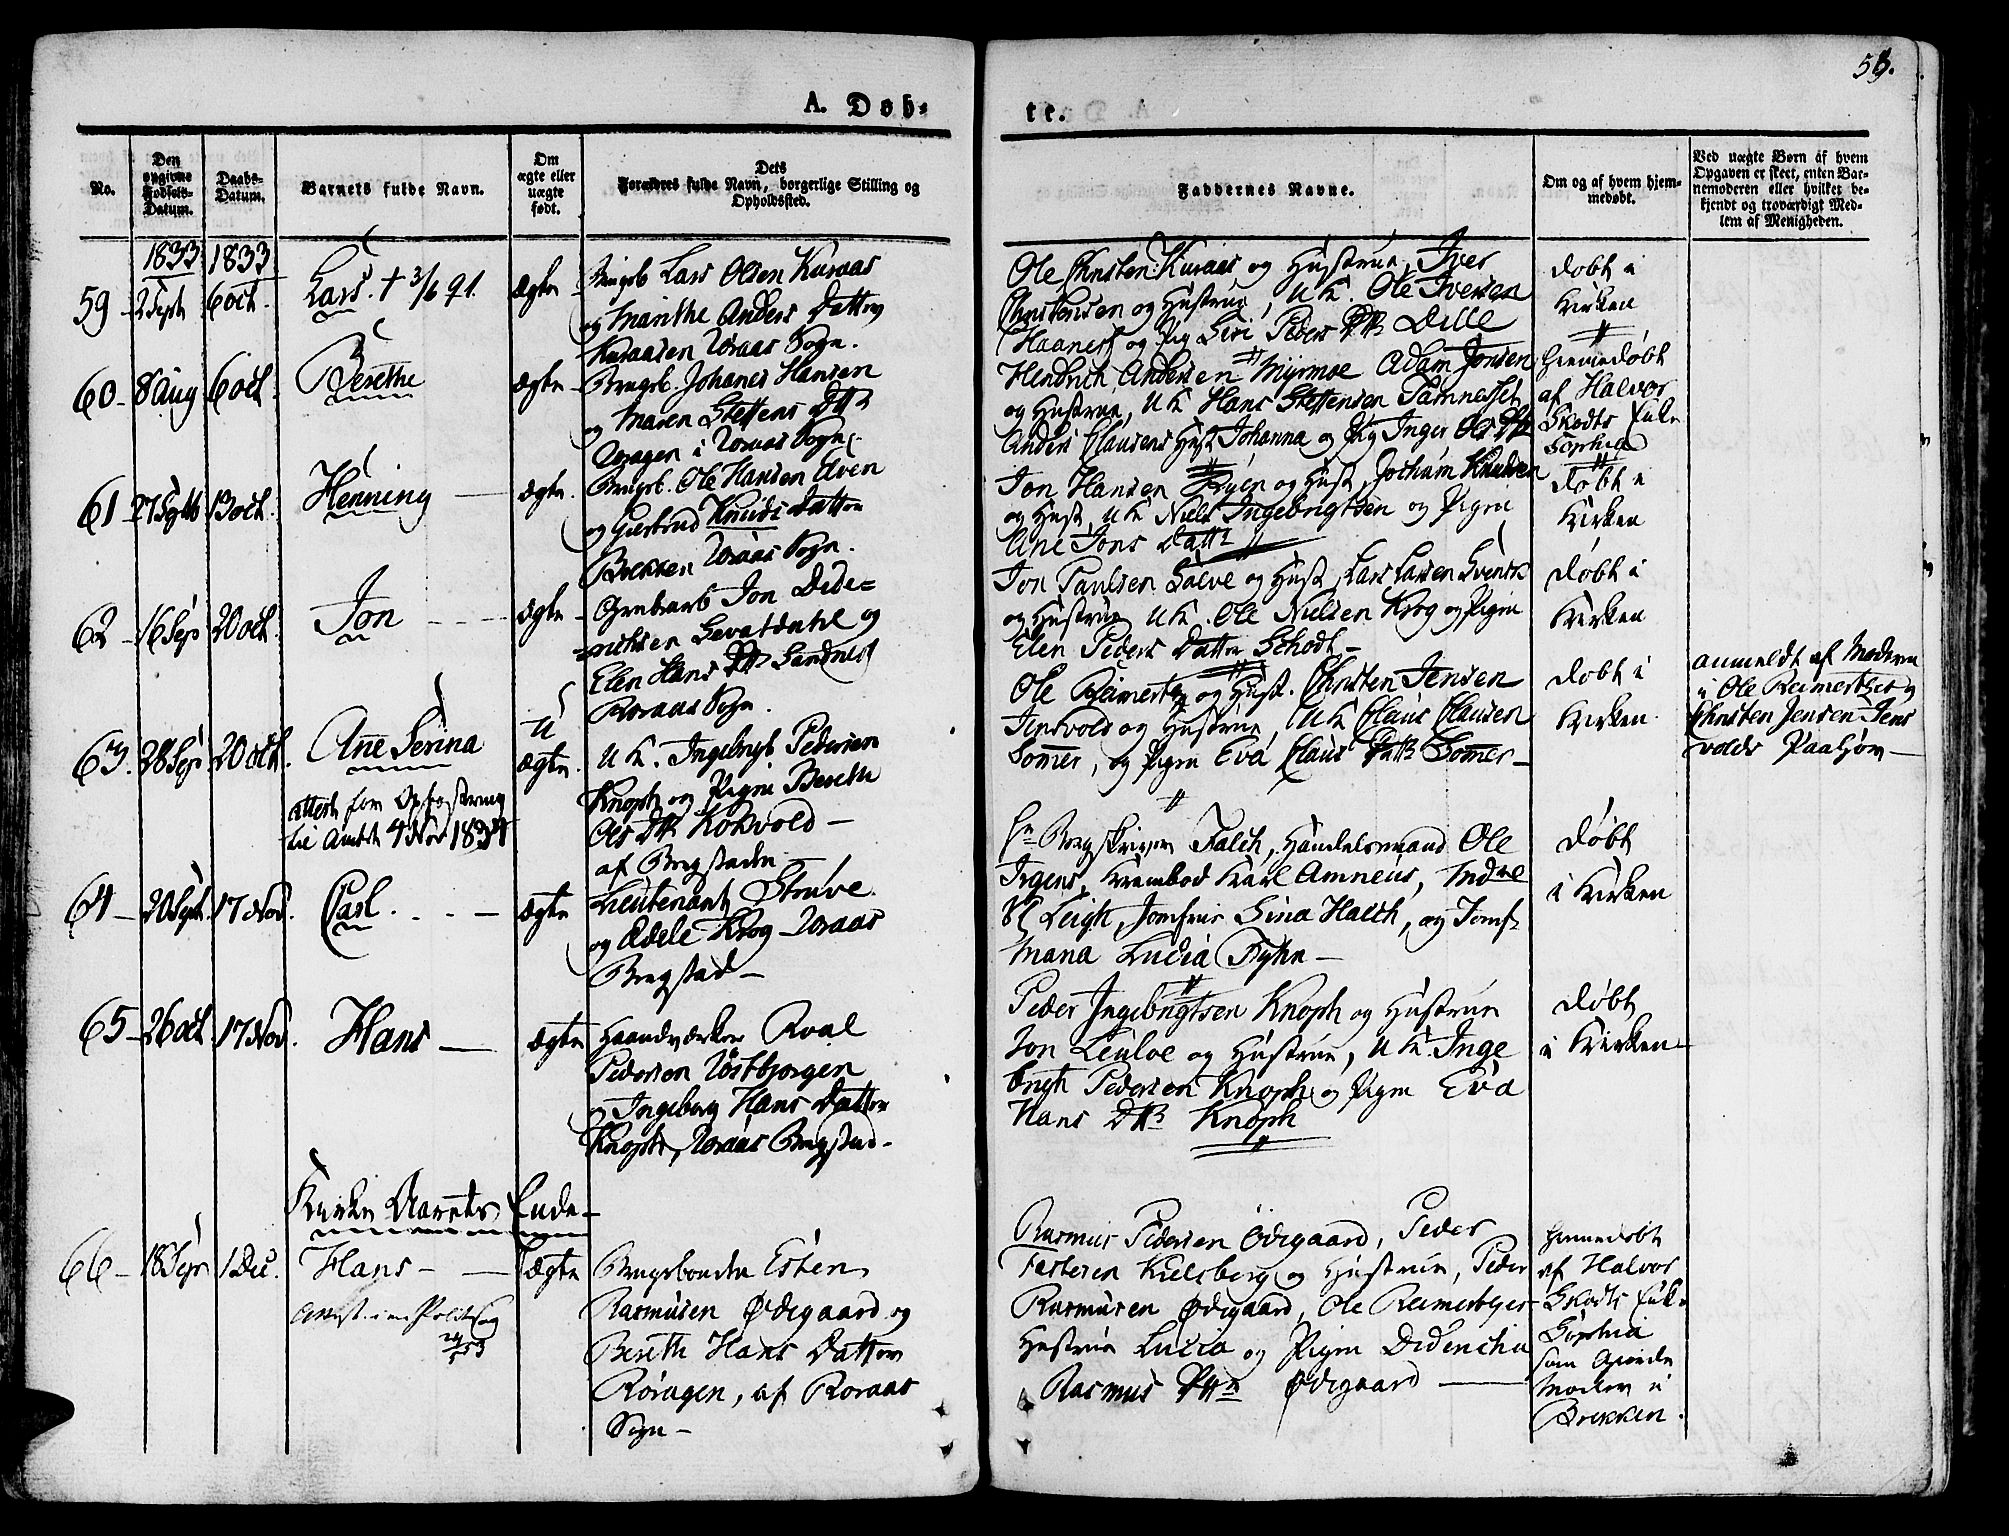 53.
A. Døb-
te.
No.
Den opgivne Fødsels-Datum.
Daabs-Datum.
Barnets fulde Navn.
Om ægte eller uægte født.
Dets Forældres fulde Navn, borgerlige Stilling og Opholdssted.
Faddernes Navne.
Om og af hvem hjem-
medøbt.
Ved uægte Børn af hvem
Opgaven er skeet, enten Bar-
nemoderen eller hvilket be-
kjendt og troværdigt Med-
lem af Menigheden.
1833 1833
59 2 Sept 6 oct. Lars. + 3/6 91. ægte
Brugsb Lars Olsen Kuraas
og Marithe Anders Datter
Kuraasen Røraas Sogn.
Ole Christen: Kuraas og Hustrue, Iver
Christensen og Hustrue, UK. Ole Iversen
Haanes og Pig Siri Peders Dtr Dille
døbt i
Kirken
60 8 Aug 6 oct. Berethe ægte
Brugsb. Johanes Hansen
og Maren Steffens Dttr
i Røraas Sogn.
Hendrich Andersen Myrmoe Adam Jonsen
og Hustrue, UK Hans Steffensen Tamneset
Anders Clausens Hust Johanna og Pig Inger Ols Dttr
hiemedøbt
af Halvor
Skodts
Sophia
61 27 Septb 13 oct. Henning ægte.
Brugsb. Ole Hansen Elven
og Giertrud Knuds Datter
Brekken Røraas Sogn.
Jon Hansen Ryen og Hust, Jochum Knudsen
og Hust, UK Niels Ingebrigtsen og Pigen
Ane Jons Dattr
døbt i
Kirken
62 16 Sep 20 oct. Jon ægte
Jon Dide-
richsen og
Elen Hans Dttr Sandnes
Røraas Sogn.
Jon Paulsen Galve og Hust, Lars Larsen Svensk
og Hustrue UK. Ole Nielsen Krog og Pigen
Elen Peders Datter Schodt
døbt i
Kirken
63. 28 Sep 20 oct. Ane Serina u ægte.
Attest for Opfostring
til Amtet 4 Nov 1834
UK. Ingebrigt Pedersen
Knoph og Pigen Berethe
Ols Dttr Kokvold
af Bergstaden
Ole Reimertz og Hust. Christen Jensen
Jensvold og Hustrue, UK Claus Clausen
Somer, og Pigen Eva Claus Dattr Somer
døbt i
Kirken.
anmeldt af Moderen
Christen Jensen Jens
volds Paasjøn
64 20 Sept. 17 Nov. Carl. ægte
Lieutenant Struve
og Ædele Krog Røraas
Bergstad
Hr Bergskriver Falch, Handelsmand Ole
Irgens, Karl Amneus,
Leigh, Jomfrue Sina Halch, og Jomf
Mana Lucia Fyhn
døbt
i Kirken
65 26 oct. 17 Nov. Hans ægte
Haandværker Roal
Pedersen Østbjørgen
og Ingeborg Hans Datter
Knoph, Røraas Bergstad
Peder Ingebrigtsen Knoph og Hustrue
Jon Leuloe og Hustrue, UK. Inge
brigt Pedersen Knoph og Pigen Eva
Hans Dttr Knoph
døbt
i Kirken
Kirke Aarets Ende
66 18 Sep 1 Dec. Hans ægte
Attest i en Politisag
Brugsbonden Esten
Rasmusen Ødegaard og
Bereth Hans Datter
Røragen, af Røraas
Sogn
Rasmus Pedersen Ødegaard, Peder
Kielsberg og Hustrue, Peder
Rasmusen Ødegaard, Ole Reimertz
Hustrue Lucia og Pigen Diderichia
Rasmus Dttr Ødegaard
hiemedøbt
af Halvor
Skodts
Sophia
som
Moder i
Brekken.